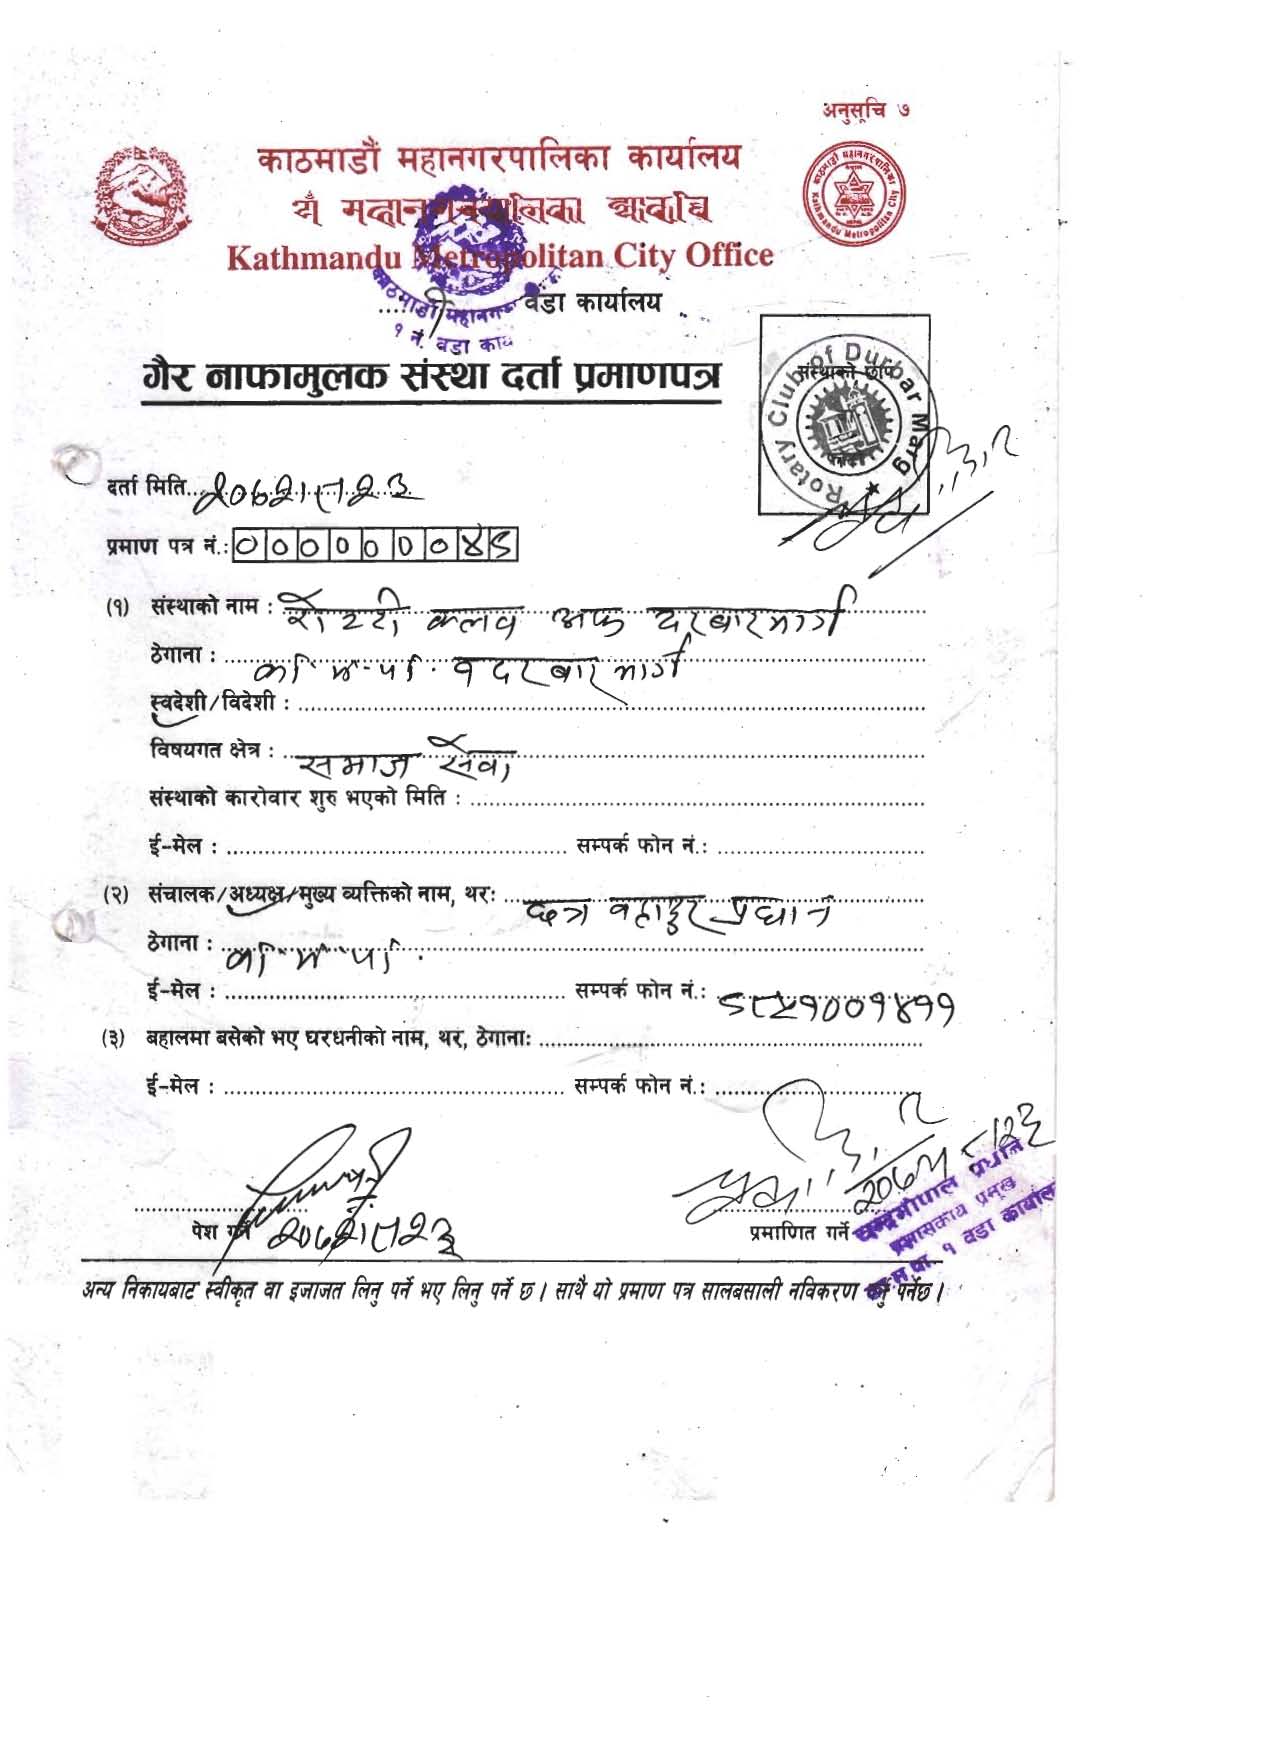 अनुसूचि ७
काठमाडौं महानगरपालिका कार्यालय
Kathmandu Metropolitan City Office
१ वडा कार्यालय
काठमाडौं महानगर
१ नं. वडा
गैर नाफामुलक संस्था दर्ता प्रमाणपत्र
संस्थाको छाप
Rotary Club of Durbar Marg
दर्ता मिति
प्रमाण पत्र नं.: ०००००००४९
(१) संस्थाको नाम : रोटरी क्लव अफ दरबारमार्ग
ठेगाना : का.म.पा. १ दरबारमार्ग
स्वदेशी/विदेशी :
विषयगत क्षेत्र : समाज सेवा
संस्थाको कारोवार शुरु भएको मिति :
ई-मेल : सम्पर्क फोन नं.:
(२) संचालक/अध्यक्ष/मुख्य व्यक्तिको नाम, थरः छत्र बहादुर प्रधान
ठेगाना : का.म.पा.
ई-मेल : सम्पर्क फोन नं.: ९८५१००१४११
(३) बहालमा बसेको भए घरधनीको नाम, थर, ठेगानाः
ई-मेल : सम्पर्क फोन नं.:
पेश गर्ने
प्रमाणित गर्ने
प्रशासकीय प्रमुख
का.म.पा. १ वडा कार्यालय
अन्य निकायबाट स्वीकृत वा इजाजत लिनु पर्ने भए लिनु पर्ने छ । साथै यो प्रमाण पत्र सालबसाली नविकरण गर्नु पर्नेछ ।